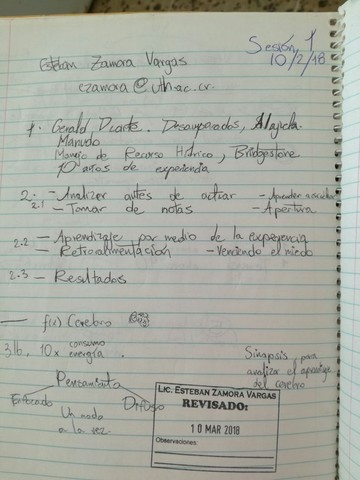 Sesión 1
10/2/18
Esteban Zamora Vargas
ezamora@uth.ac.cr.
1. Gerald Desamparados, Alajuela.
Manudo
Manejo de Recurso Hídrico, Bridgestone
10 años de experiencia
2. - Analizar antes de actuar - Aprender a escuchar
2.1 - Tomar de notas - Apertura
2.2 - Aprendizaje por medio de la expreyencia
- Retroalimentación - Venciendo el miedo
2.3 - Resultados
f(x) Cerebro
3lb. 10x consumo energía.
Sinapsis, para
analizar el
del cerebro
Pensamiento
Enfocado Difuso
Un nodo
a la vez.
LIC. ESTEBAN ZAMORA VARGAS
REVISADO:
10 MAR 2018
Observaciones: